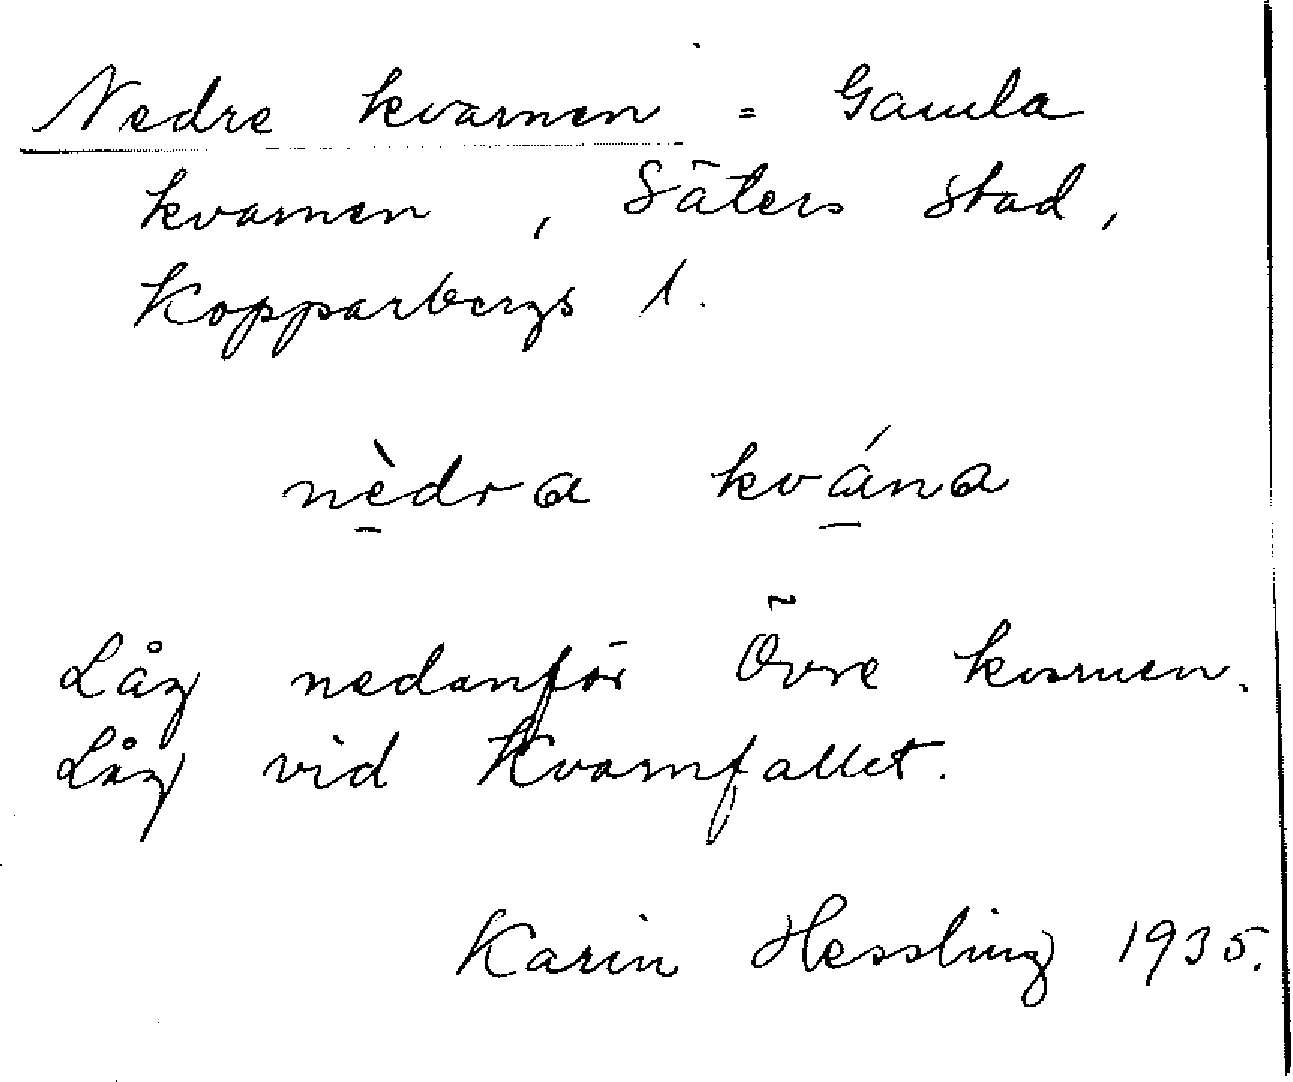 Nedre kvarnen = Gamla
kvarnen, Säters stad,
Kopparbergs l.
nèdra kvána
Låg nedanför Övre kvarnen.
Låg vid Kvarnfallet.
Karin Hessling 1935.